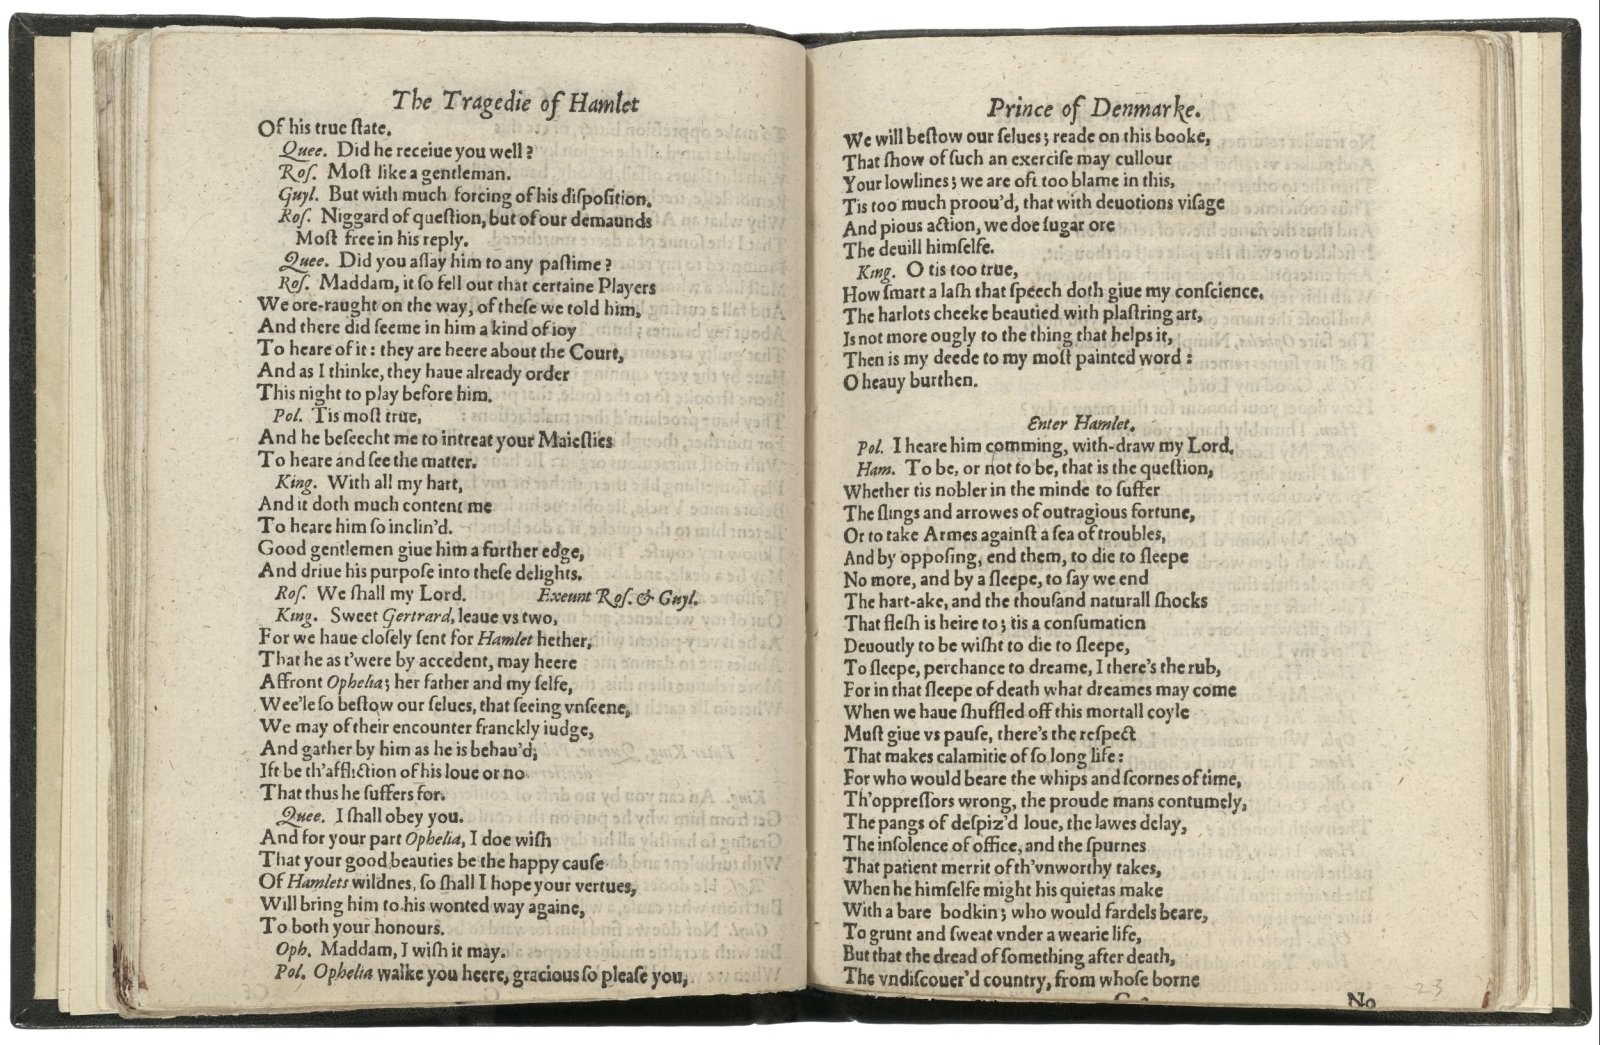 The Tragedie of Hamlet
Of his true ſtate.
Quee. Did he receiue you well?
Roſ. Moſt like a gentleman.
Guyl. But with much forcing of his diſpoſition.
Roſ. Niggard of queſtion, but of our demaunds
Moſt free in his reply.
Quee. Did you aſſay him to any paſtime?
Roſ. Maddam, it ſo fell out that certaine Players
We ore-raught on the way, of theſe we told him,
And there did ſeeme in him a kind of ioy
To heare of it: they are heere about the Court,
And as I thinke, they haue already order
This night to play before him.
Pol. Tis moſt true,
And he beſeecht me to intreat your Maieſties
To heare and ſee the matter.
King. With all my hart,
And it doth much content me
To heare him ſo inclin'd.
Good gentlemen giue him a further edge,
And driue his purpoſe into theſe delights.
Roſ. We ſhall my Lord. Exeunt Roſ. & Guyl.
King. Sweet Gertrard, leaue vs two,
For we haue cloſely ſent for Hamlet hether,
That he as t'were by accedent, may heere
Affront Ophelia; her father and my ſelfe,
Wee'le ſo beſtow our ſelues, that ſeeing vnſeene,
We may of their encounter franckly iudge,
And gather by him as he is behau'd,
Iſt be th'affliction of his loue or no
That thus he ſuffers for.
Quee. I ſhall obey you.
And for your part Ophelia, I doe wiſh
That your good beauties be the happy cauſe
Of Hamlets wildnes, ſo ſhall I hope your vertues,
Will bring him to his wonted way againe,
To both your honours.
Oph. Maddam, I wiſh it may.
Pol. Ophelia walke you heere, gracious ſo pleaſe you,
Prince of Denmarke.
We will beſtow our ſelues; reade on this booke,
That ſhow of ſuch an exerciſe may cullour
Your lowlines; we are oft too blame in this,
Tis too much proou'd, that with deuotions viſage
And pious action, we doe ſugar ore
The deuill himſelfe.
King. O tis too true,
How ſmart a laſh that ſpeech doth giue my conſcience.
The harlots cheeke beautied with plaſtring art,
Is not more ougly to the thing that helps it,
Then is my deede to my moſt painted word:
O heauy burthen.
Enter Hamlet.
Pol. I heare him comming, with-draw my Lord.
Ham. To be, or not to be, that is the queſtion,
Whether tis nobler in the minde to ſuffer
The ſlings and arrowes of outragious fortune,
Or to take Armes againſt a ſea of troubles,
And by oppoſing, end them, to die to ſleepe
No more, and by a ſleepe, to ſay we end
The hart-ake, and the thouſand naturall ſhocks
That fleſh is heire to; tis a conſumation
Deuoutly to be wiſht to die to ſleepe,
To ſleepe, perchance to dreame, I there's the rub,
For in that ſleepe of death what dreames may come
When we haue ſhuffled off this mortall coyle
Muſt giue vs pauſe, there's the reſpect
That makes calamitie of ſo long life:
For who would beare the whips and ſcornes of time,
Th'oppreſſors wrong, the proude mans contumely,
The pangs of deſpiz'd loue, the lawes delay,
The inſolence of office, and the ſpurnes
That patient merrit of th'vnworthy takes,
When he himſelfe might his quietas make
With a bare bodkin; who would fardels beare,
To grunt and ſweat vnder a wearie life,
But that the dread of ſomething after death,
The vndiſcouer'd country, from whoſe borne
No
23